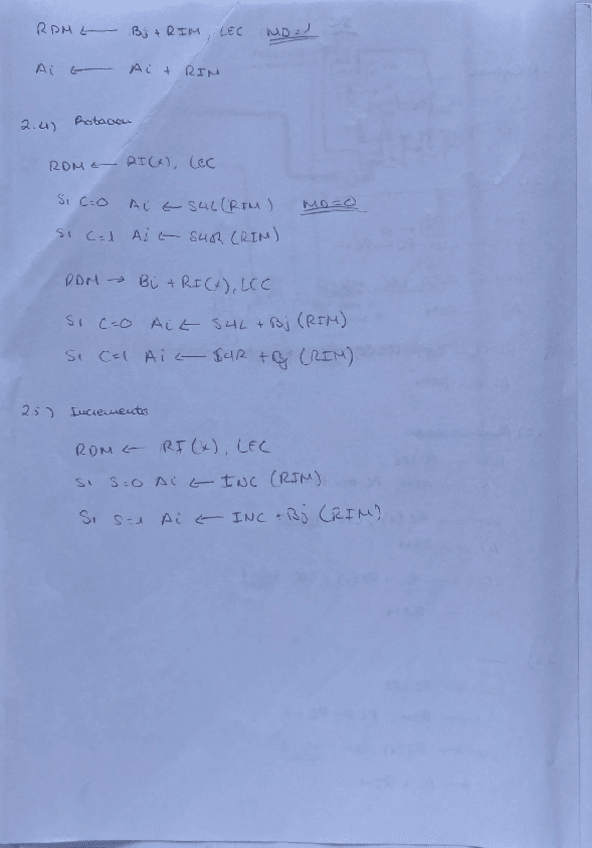 RDM ← Bj + RIM, LEC MD=1
Ai ← Ai + RIM
2.4) Rotacion
RDM ← RI(x), LEC
Si C=0 Ai ← SHL(RIM) MD=0
Si C=1 Ai ← SHR (RIM)
RDM → Bi + RI(x), LEC
Si C=0 Ai ← SHL + Bj (RIM)
Si C=1 Ai ← SHR + Bj (RIM)
2.5) Incremento
RDM ← RI(x), LEC
Si S=0 Ai ← INC (RIM)
Si S=1 Ai ← INC + Bj (RIM)